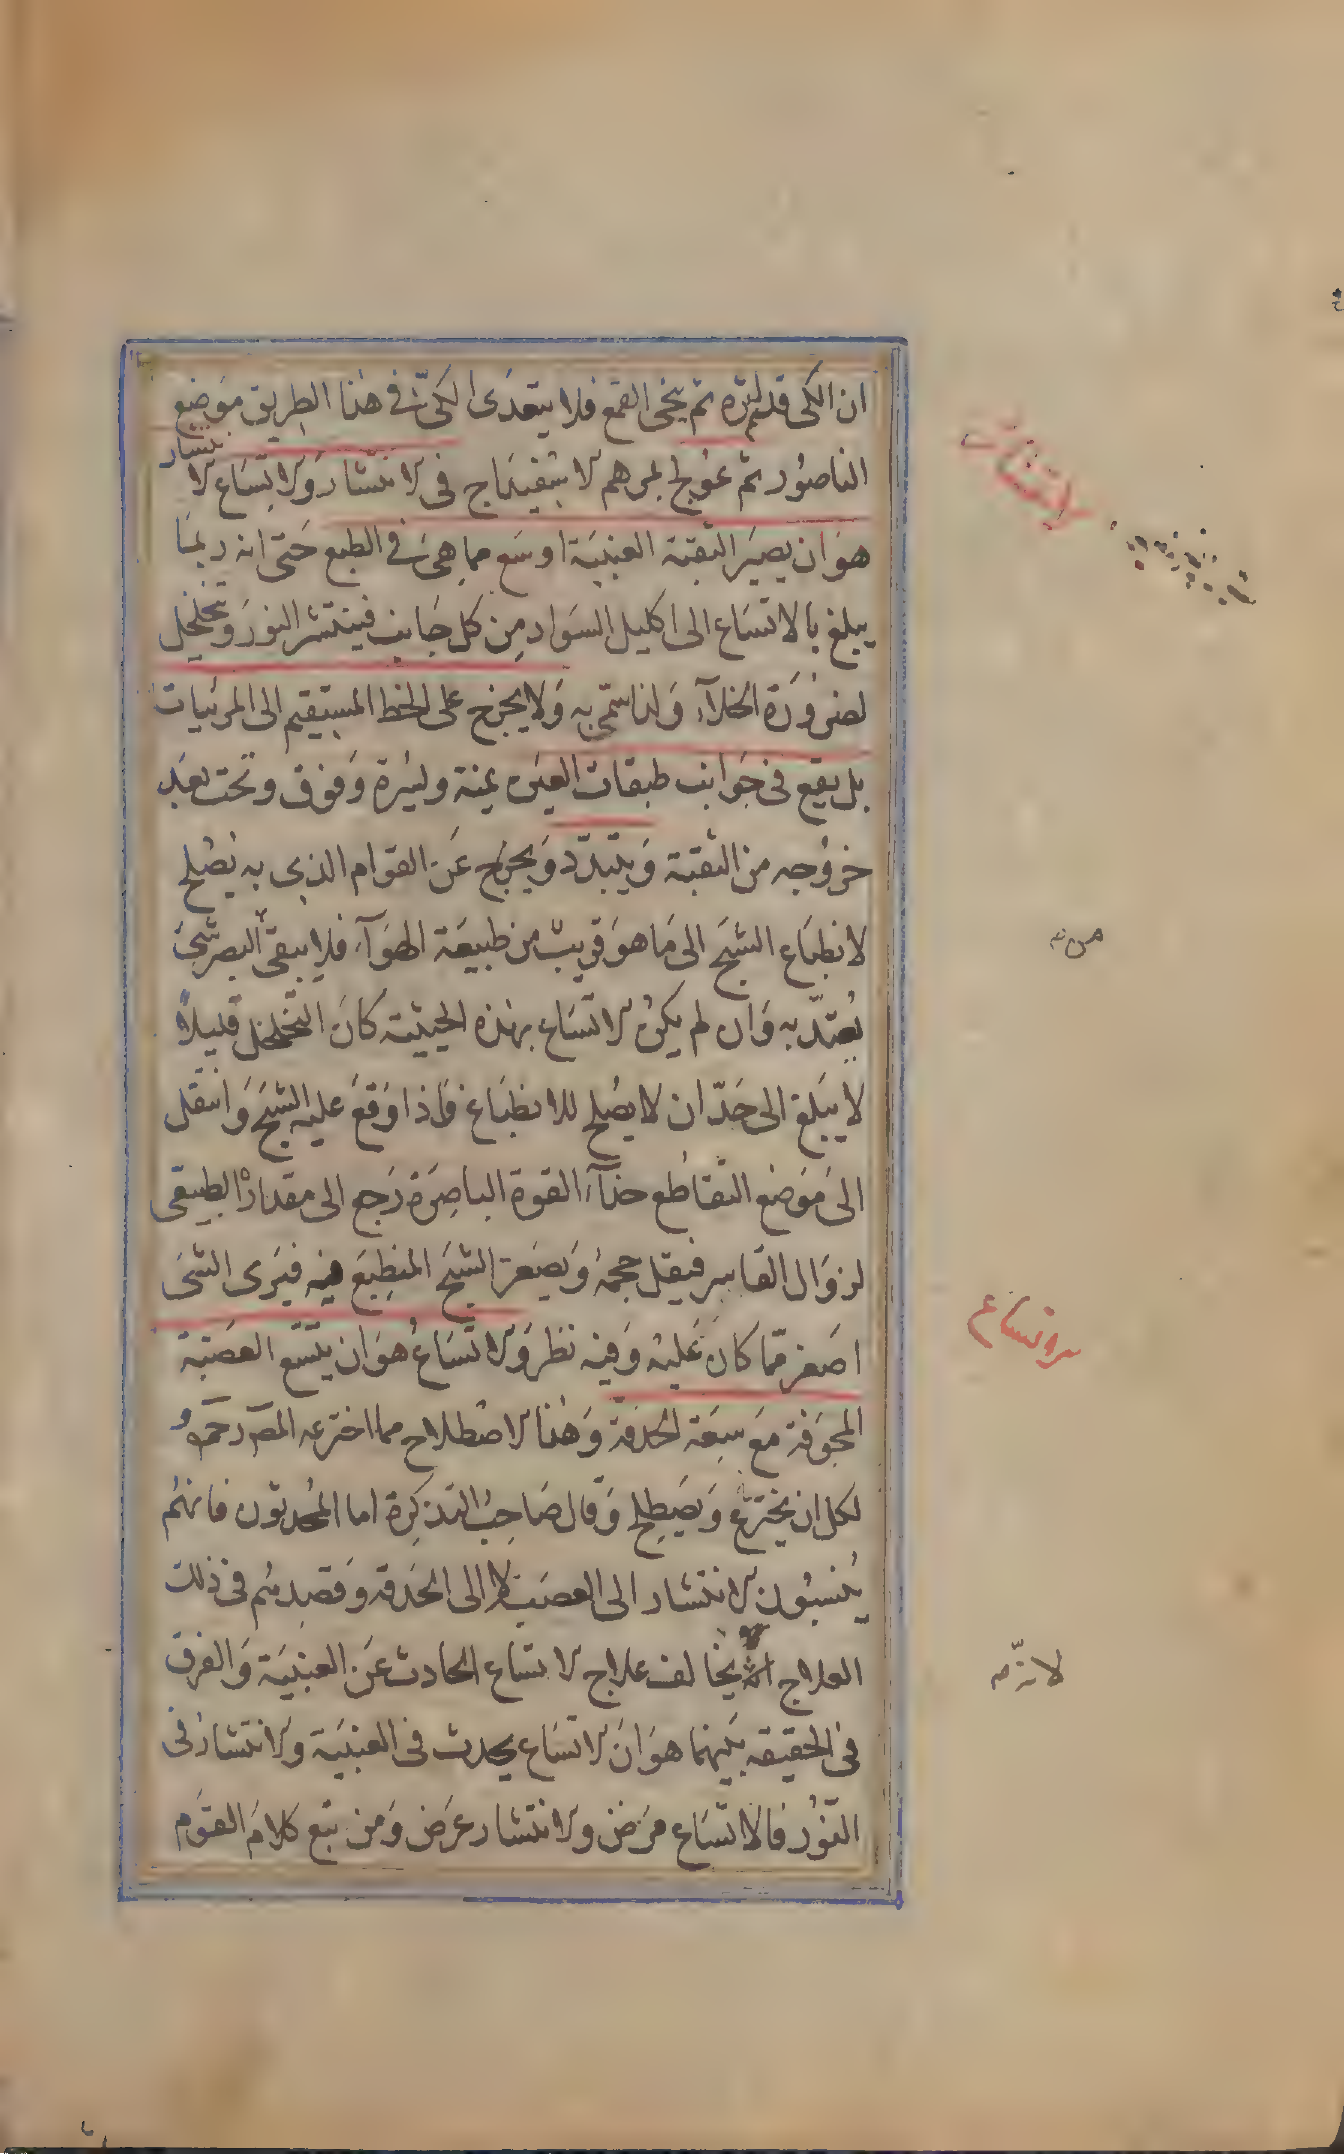 ان الكى قد لره ثم ينحى القمع فلا يتعدى الكىّ فى هذا الطريق موضع
الناصور ثم عولج بمرهم الاسفيداج فى الانتشار والاتساع الانتشار
هو ان يصير الثقبة العنبية اوسع مما هى فى الطبع حتى انه ربما
يبلغ بالاتساع الى اكليل السواد من كل جانب فينتشر النور ويتخلخل
لضرورة الخلآء ولذا سمّى به ولا يخرج على الخط المستقيم الى المرئيات
بل يقع فى جوانب طبقات العين يمنة ويسرة وفوق وتحت بعد
خروجه من الثقبة ويتبدّد ويخرج عن القوام الذى به يصلح
لانطباع الشبح الى ما هو قريب من طبيعة الهوآء فلا يبقى البصر شئ
يعتدّ به وان لم يكن الاتساع بهذه الحيثية كان التخلخل قليلاً
لا يبلغ الى حدّ ان لا يصلح للانطباع فاذا وقع عليه الشبح وانتقل
الى موضع التقاطع حذآء القوة الباصرة رجع الى مقداره الطبيعى
لزوال القاسر فيقل حجمه ويصغر الشبح المنطبع فيه فيرى الشئ
اصغر مما كان عليه وفيه نظر والاتساع هو ان يتسع العصبة
المجوفة مع سعة الحدقة وهذا الاصطلاح مما اخترعه المص رحمه و
لكل ان يخترع ويصطلح وقال صاحب التذكرة اما المحدثون فانهم
ينسبون الانتشار الى العصب لا الى الحدقة وقصدهم فى ذلك
العلاج لانه يخالف علاج الاتساع الحادث عن العنبية والفرق
فى الحقيقه بينهما هو ان الاتساع يحدث فى العنبية والانتشار فى
النّور فالاتساع مرض والانتشار عرض ومن تتبع كلام القوم
الانتشار
من
الاتساع
لانّه